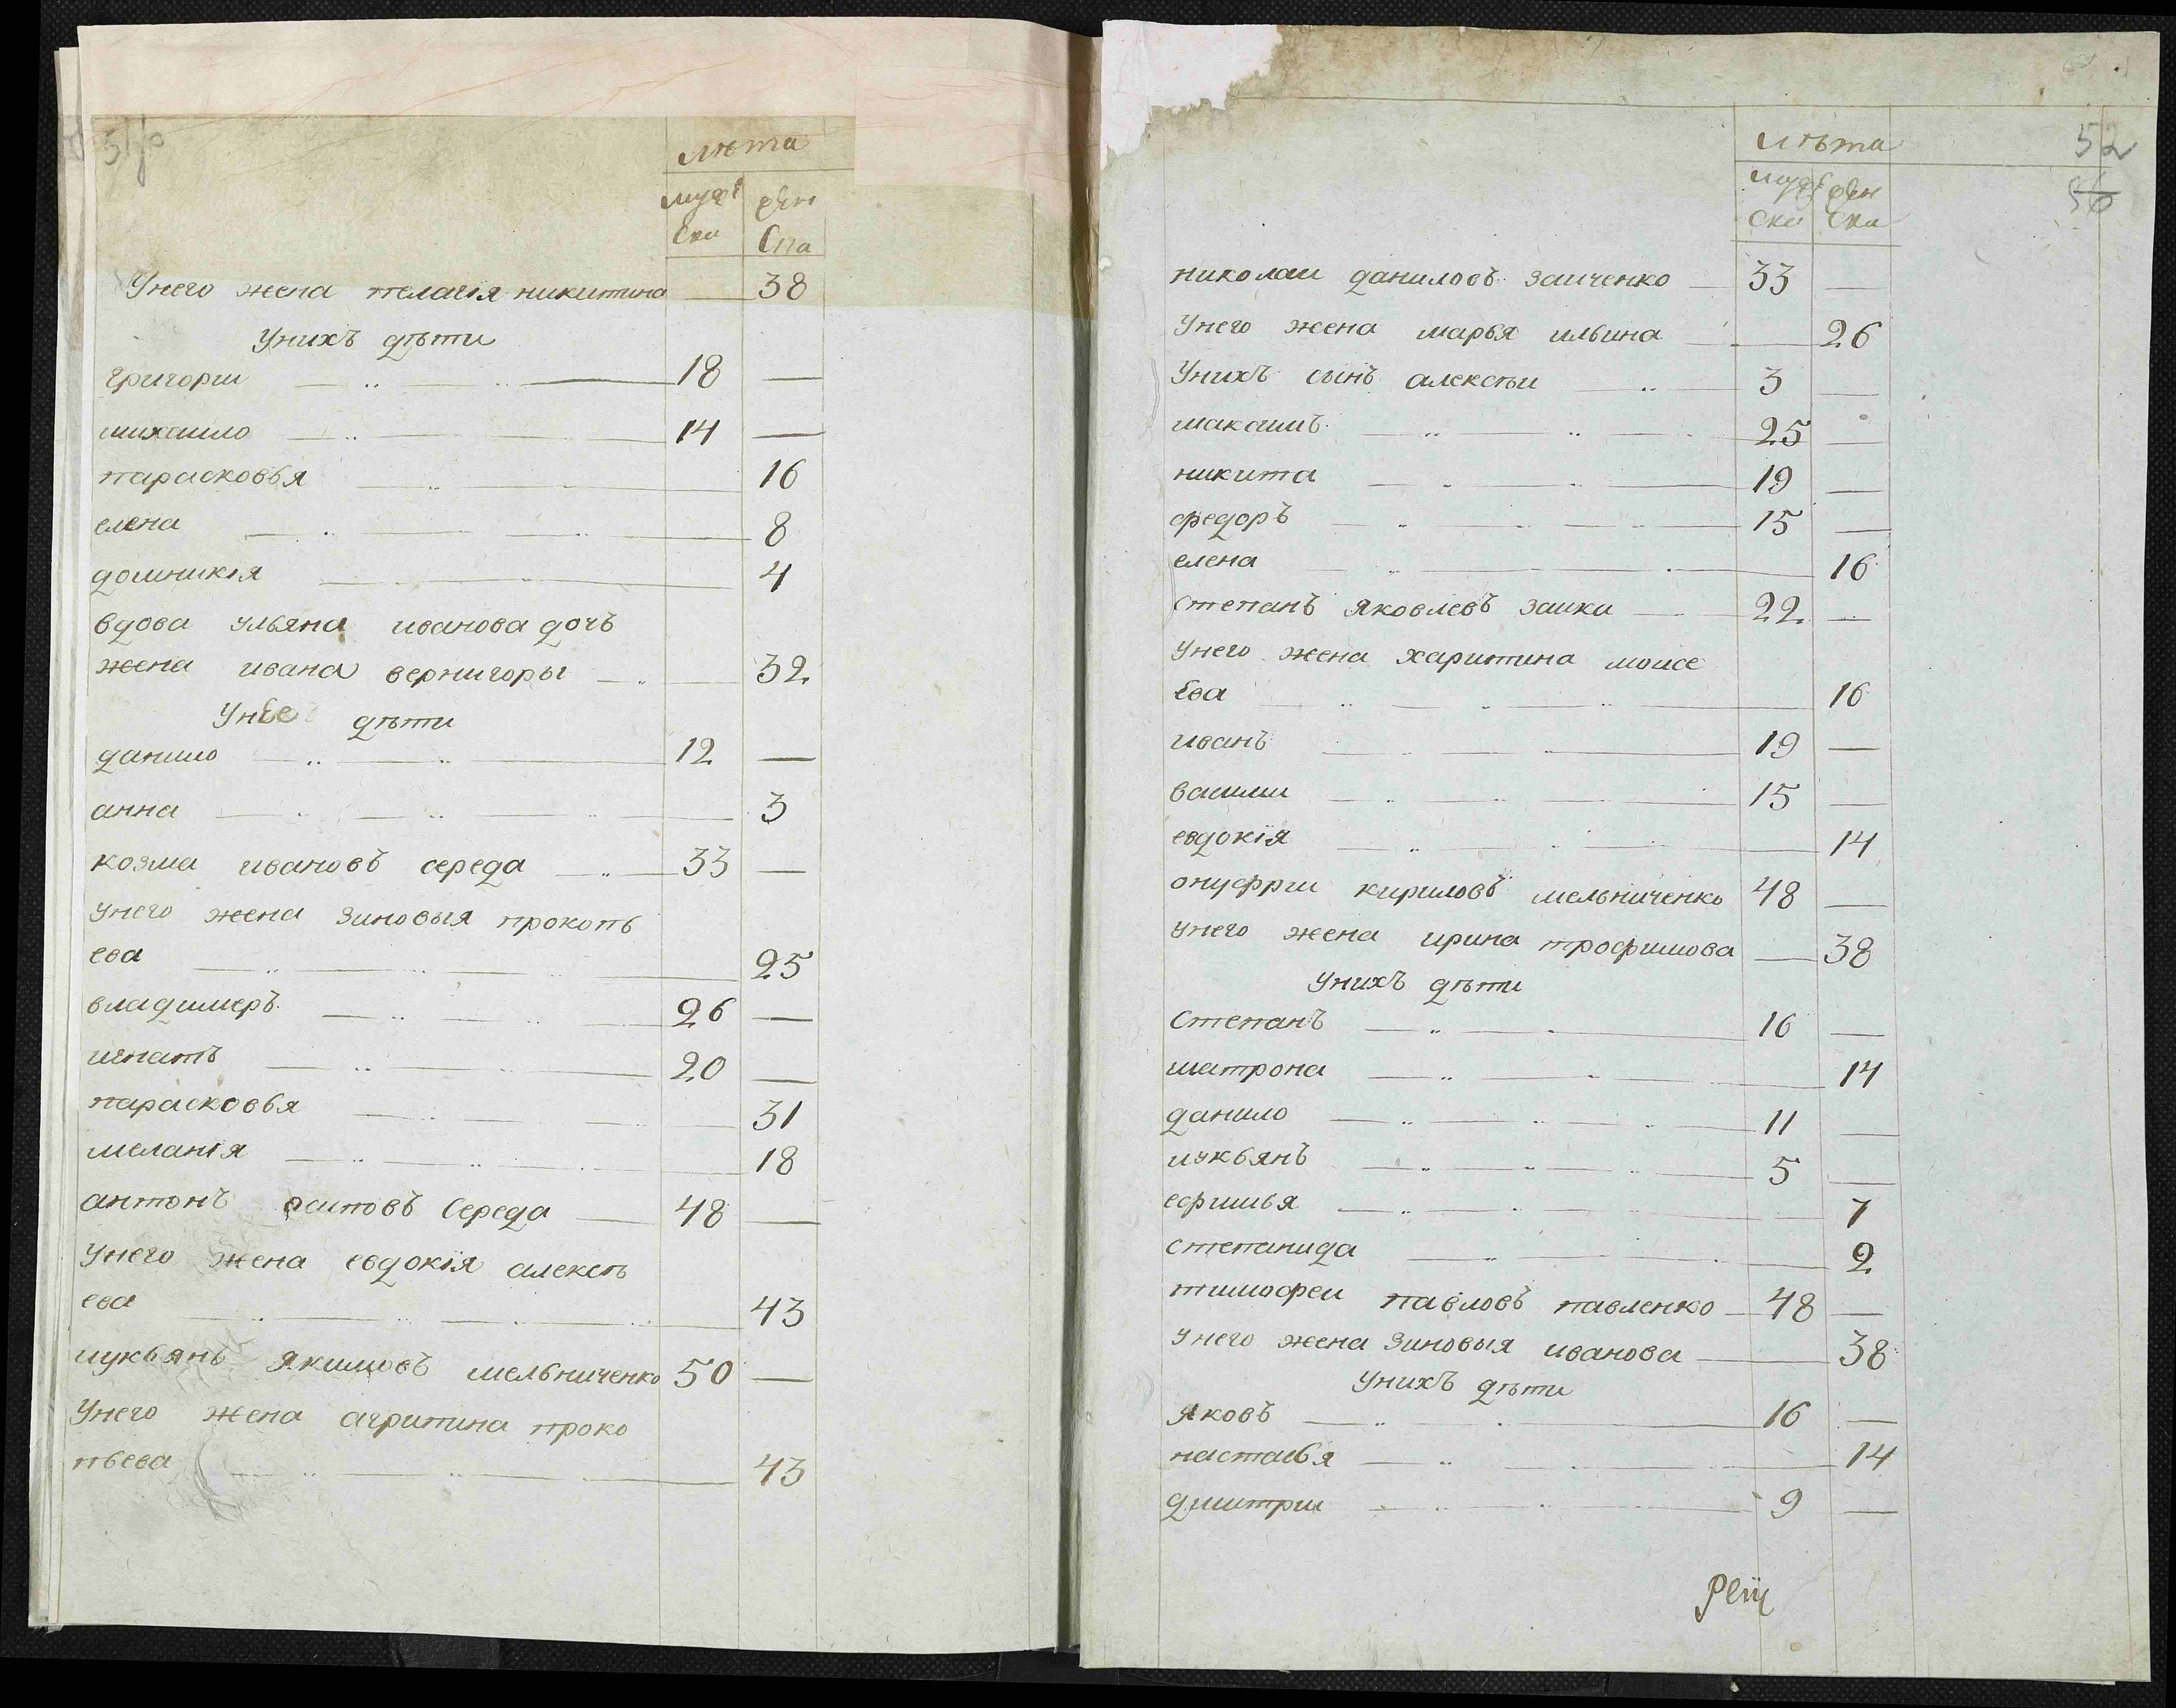 лѣта
муж ска
жен ска
Унего жена пелагія никитина 38
Унихъ дѣти
григории 18 —
михаило 14 —
парасковья 16
елена 8
домникія 4
вдова ульяна иванова дочь
жена ивана вернигоры 32
Унее дѣти
данило 12 —
анна 3
козма ивановъ середа 33 —
унего жена зиновыя прокопь
ева 25
владимеръ 26 —
игнатъ 20 —
парасковья 31
меланія 18
антонъ осиповъ Середа 48 —
Унего жена евдокія алексѣ
ева 43
лукьянъ якимовъ мельниченко 50 —
Унего жена агрипина проко
пьева 43
52
56
лѣта
муж ска
жен ска
николаи даниловъ заиченко 33 —
Унего жена марья ильина 26
Унихъ сынъ алексѣи 3 —
максимъ 25 —
никита 19 —
федоръ 15 —
елена 16
степанъ яковлевъ заика 22 —
унего жена харитина моисе
Ева 16
иванъ 19 —
васили 15 —
евдокія 14
онуфрии кириловъ мельниченко 48 —
унего жена ирина трофимова 38
унихъ дѣти
Степанъ 16 —
матрона 14
данило 11 —
лукьянъ 5 —
ефимья 7
степанида 2
тимофеи павловъ павленко 48 —
Унего жена зиновыя иванова 38
унихъ дѣти
яковъ 16 —
настасья 14
димитрии 9 —